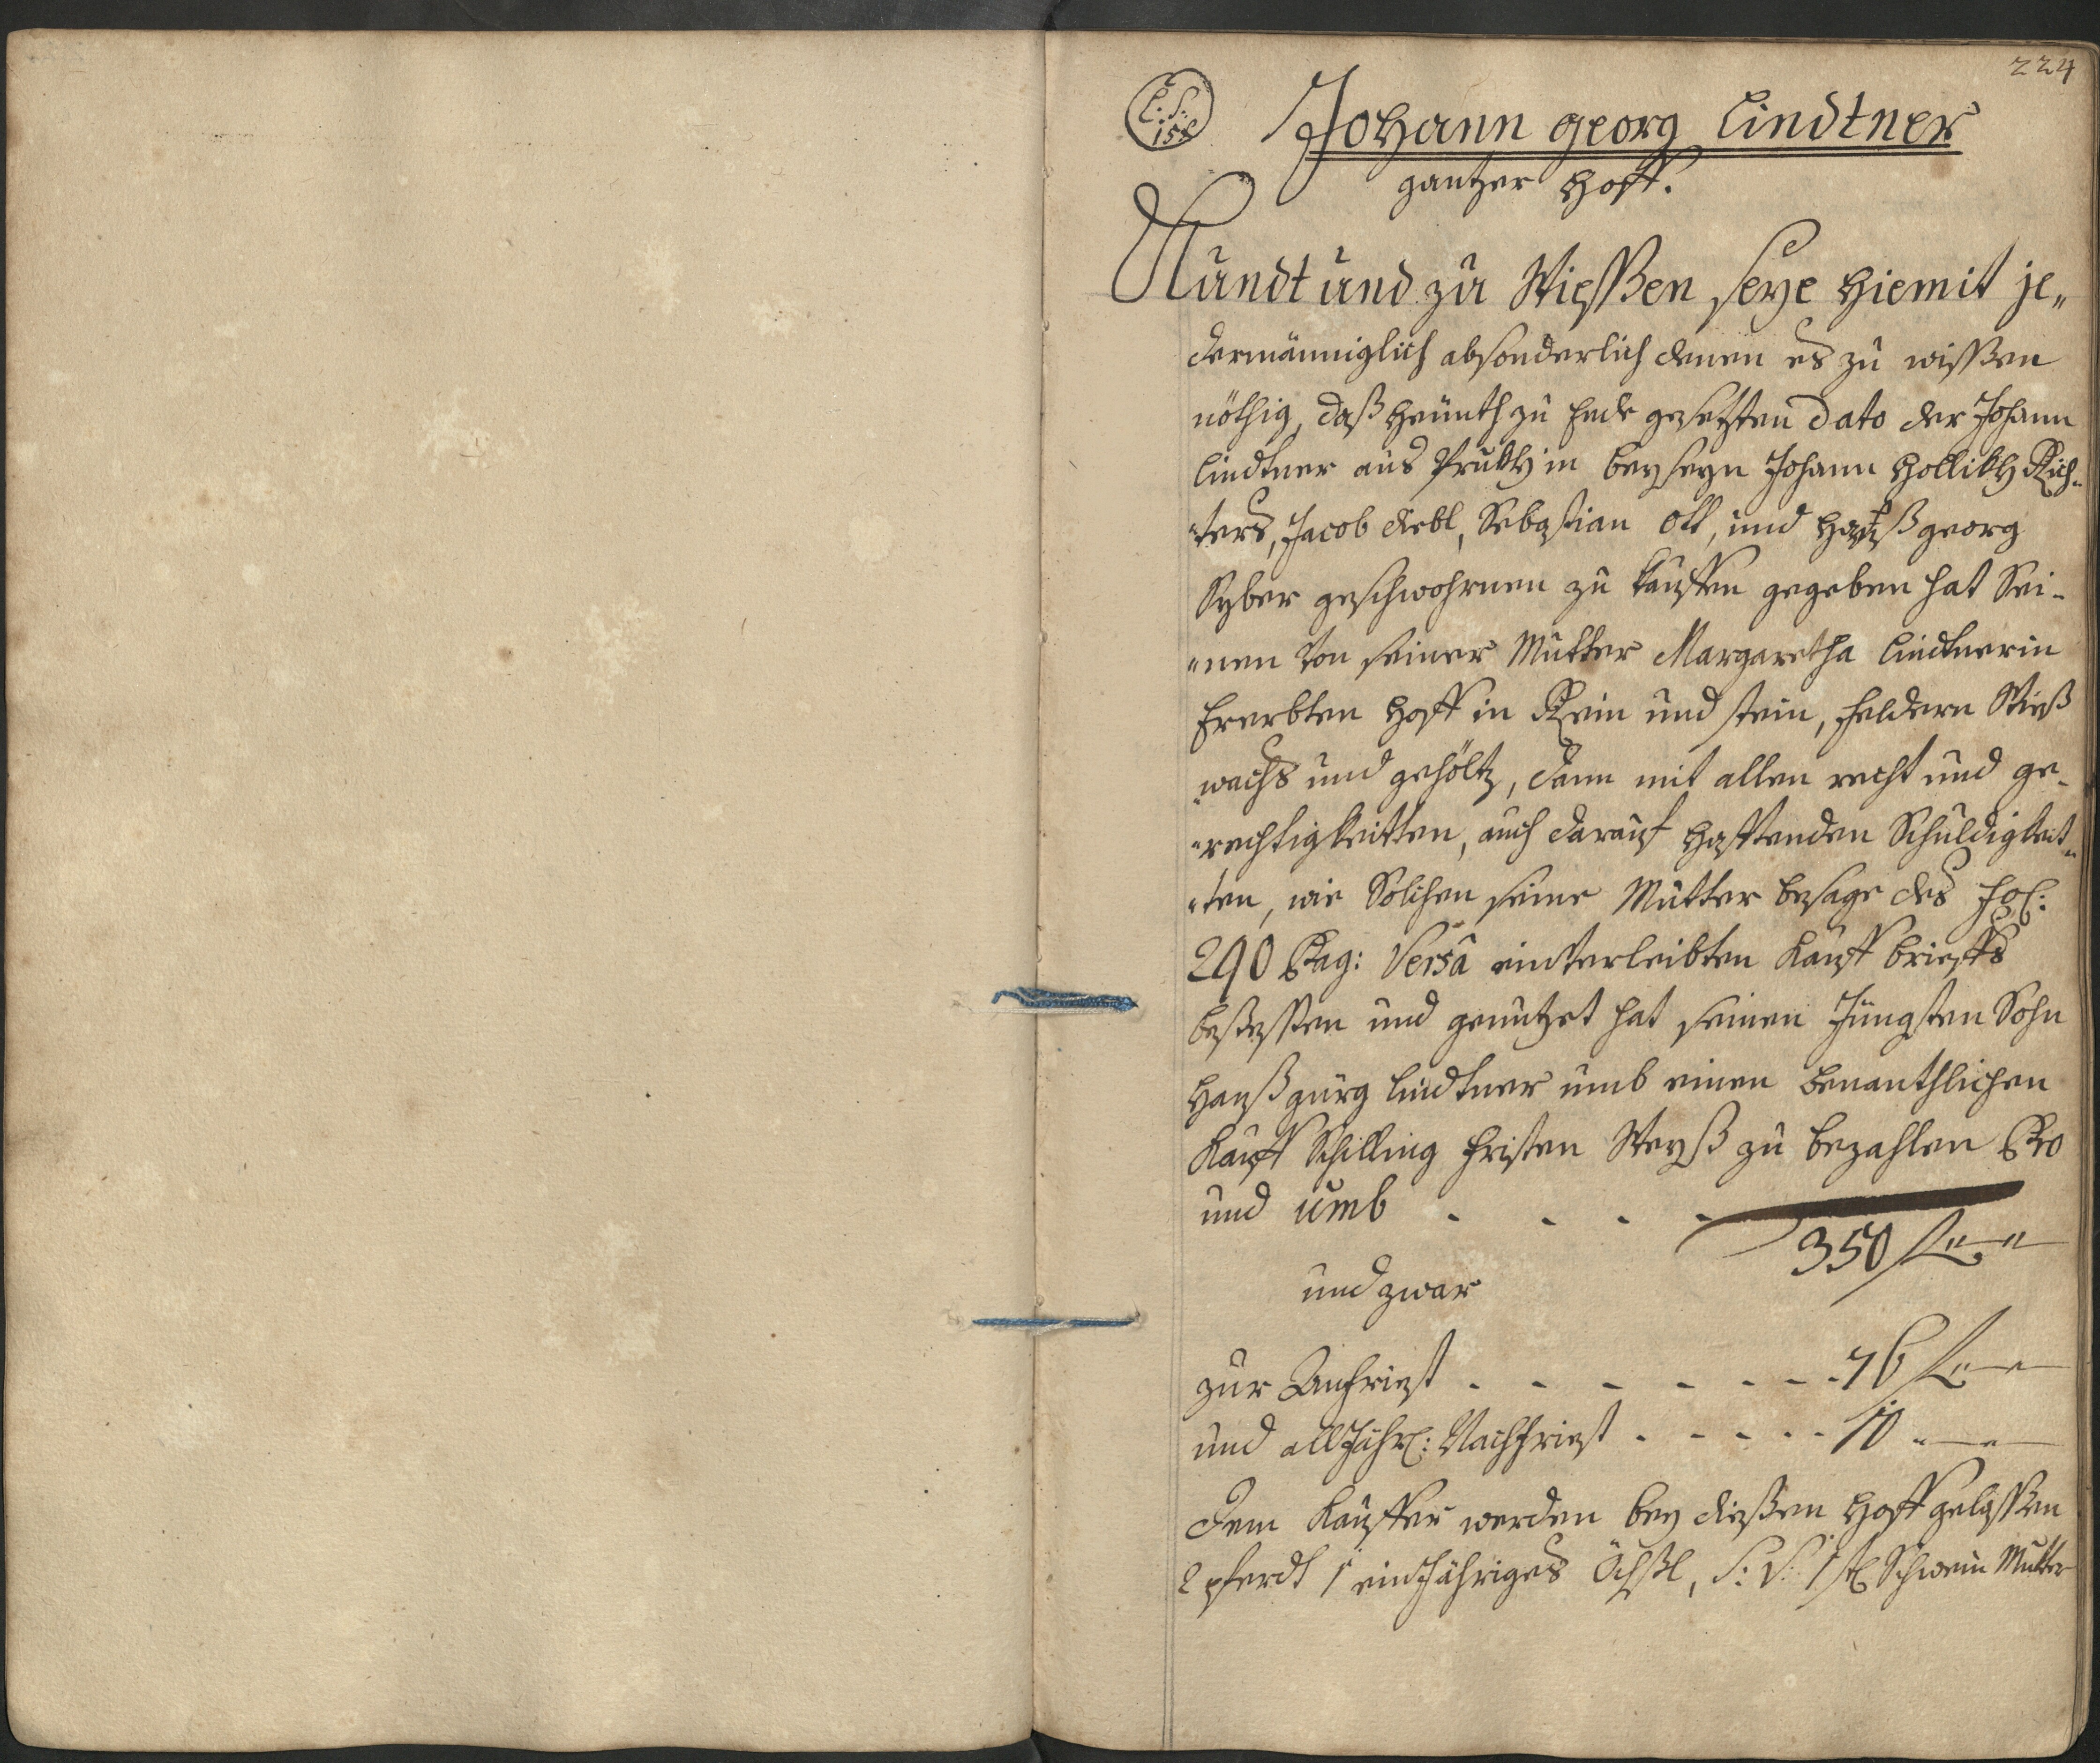 224
L: S:
158
Johann georg Lindtner
gantzer Hoff.
Kundt und zu Wießen seye hiemit je„
dermänniglich absonderlich denen es zu wissen
nöthig, daß heünth zu Ende gesetzten Dato der Johann
Lindtner aus Prukh in beyseyn Johann Hollikh Rich„
„ters, Jacob Diebl, Sebastian Ott, und Hanß georg
Syber geschwohrnen zu kauffen gegeben hat Sei„
„nen von seiner Mutter Margaretha Lindtnerin
Ererbten Hoff in Rein und stein, feldern Wieß
„wachs und gehöltz, dann mit allen recht und ge„
„rechtigkeitten, auch darauf hafftenden Schuldigkeit„
„ten, wie Solchen seine Mutter besage des Fol:
290 Pag: Versa einverleibten Kauff brieffs
beseßen und genutzet hat seinen Jüngsten Sohn
Hanß gürg Lindtner umb einen benanthlichen
Kauff Schilling fristen Weyß zu bezahlen Pro
und umb . . . .
350 f „—„
und zwar
zur Anfriest . . . . . . . 76 f „—„
und alljährl: Nachfriest . . . . . 10 „—„
Dem Kauffer werden bey dießen Hoff gelassen
2 pferdt 1 einjähriges Öchßl, S: V: 1 st Schwein Mutter